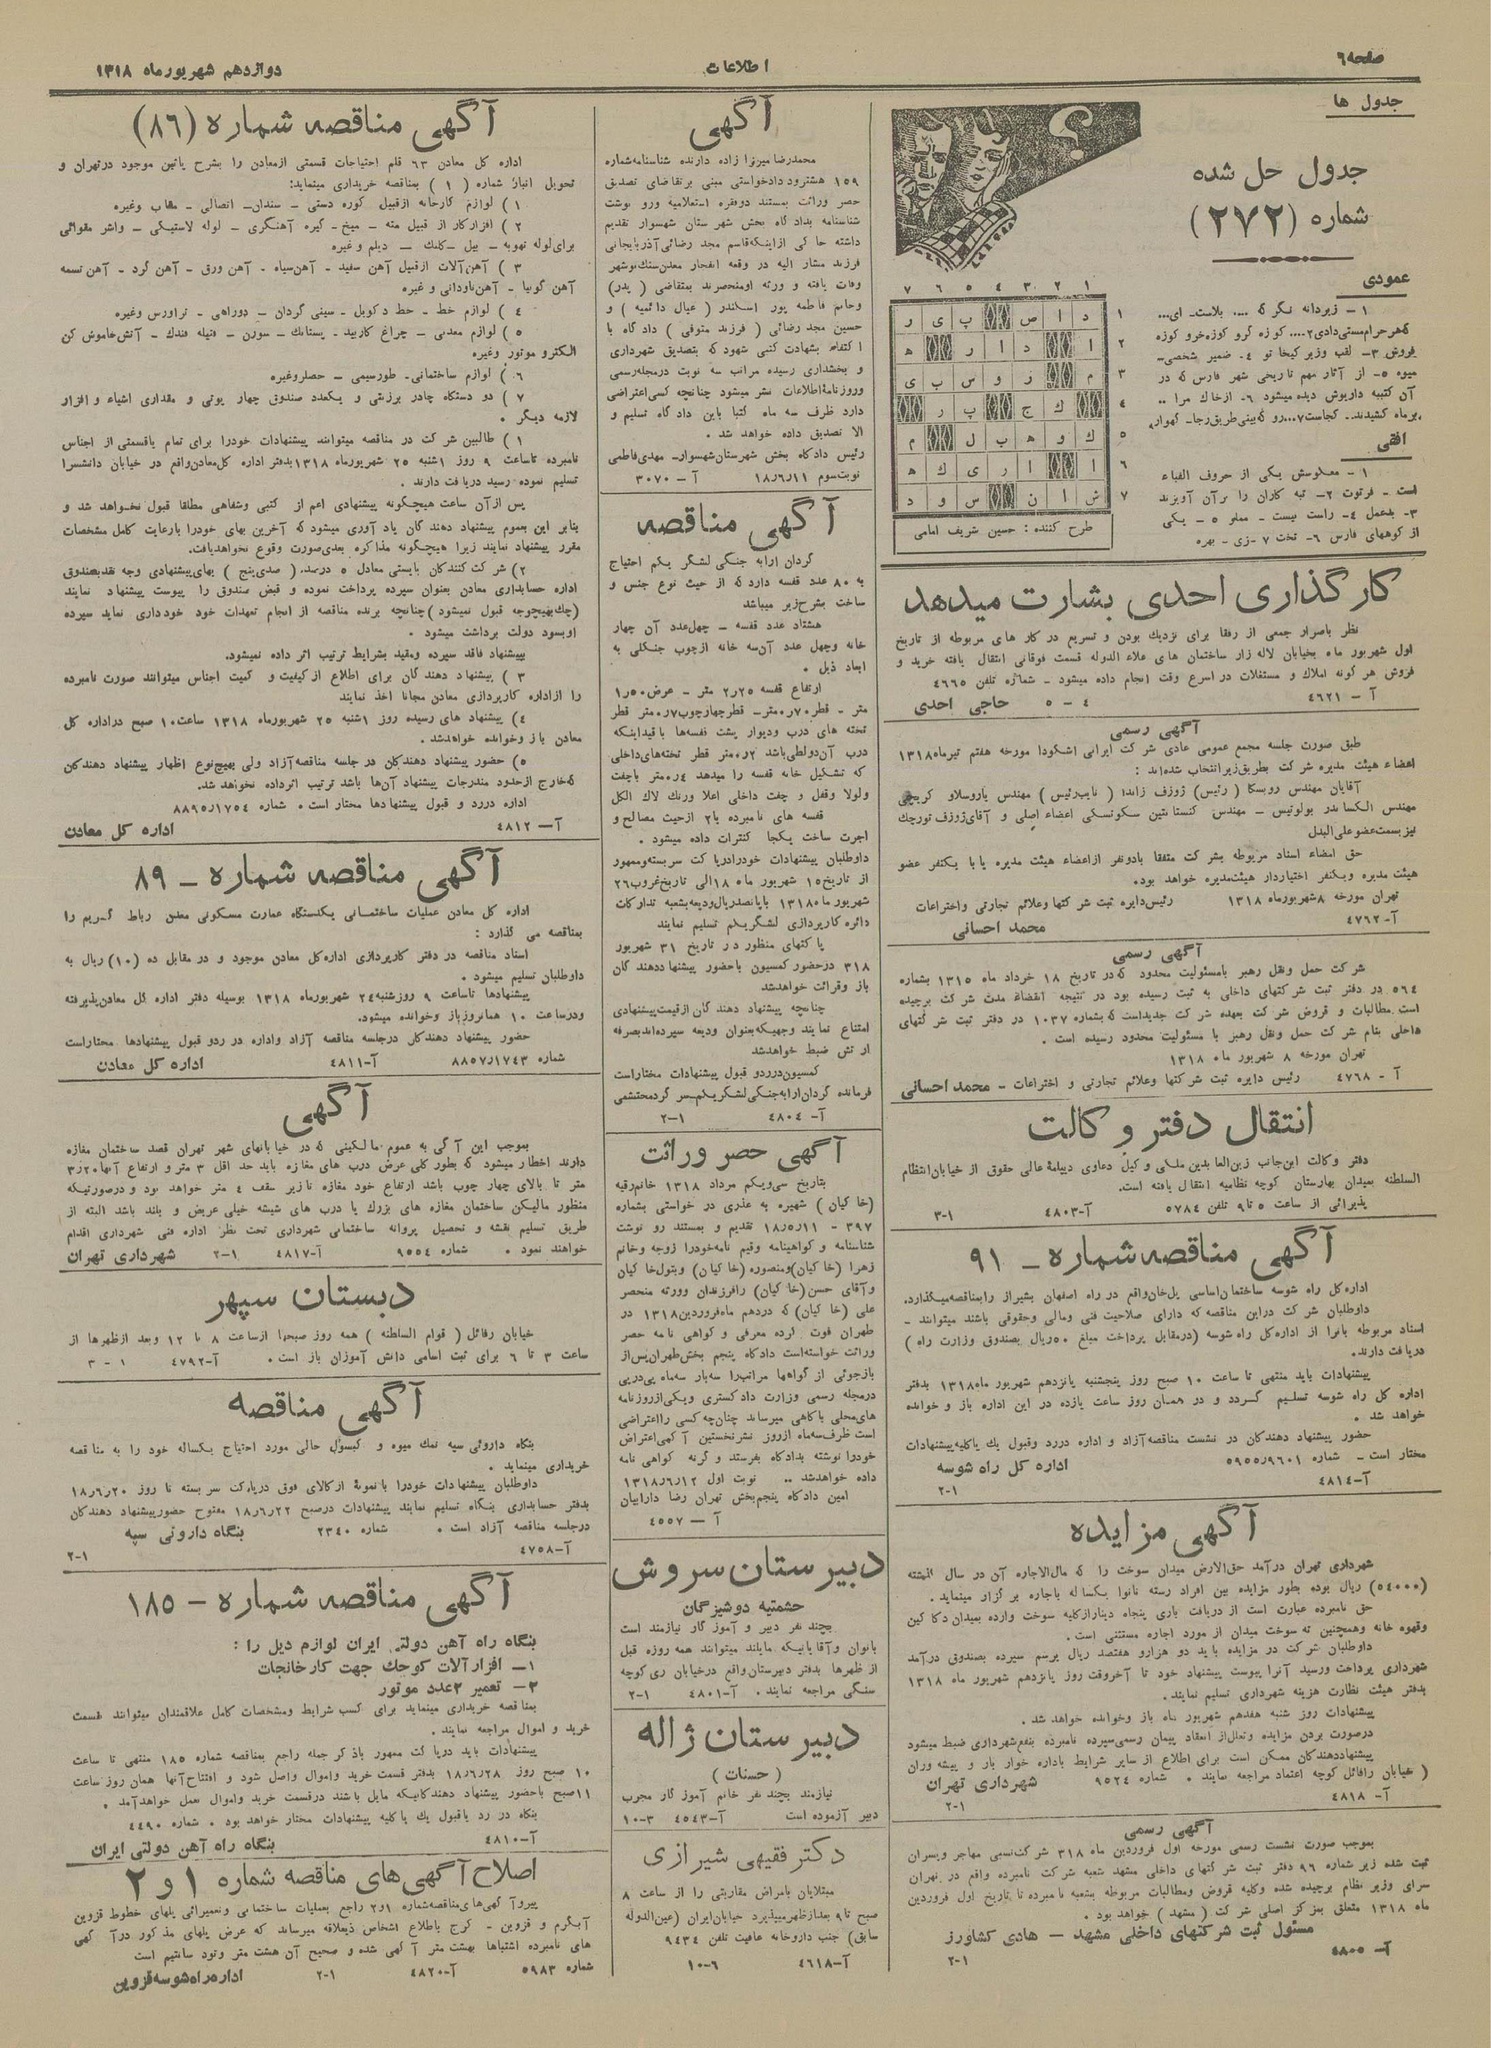 صفحه ۶
اطلاعات
دوازدهم شهریور ماه ۱۳۱۸
جدول ها
جدول حل شده
شماره (۲۷۲)
عمودی
افقی
طرح کننده : حسین شریف امامی
کارگذاری احدی بشارت میدهد
نظر باصرار جمعی از رفقا برای نزدیک بودن و تسریع در کار های مربوطه از تاریخ
اول شهریور ماه بخیابان لاله زار ساختمان های علاء الدوله قسمت فوقانی انتقال یافته خرید و
فروش هر گونه املاك و مستغلات در اسرع وقت انجام داده میشود - شماره تلفن ۴۶۶۵
آ - ۴۶۲۱ ۴ - ۵ حاجی احدی
آگهی رسمی
طبق صورت جلسه مجمع عمومی عادی شرکت ایرانی اشکودا مورخه هفتم تیرماه ۱۳۱۸
اعضاء هیئت مدیره شرکت بطریق زیر انتخاب شده‌اند :
حق امضاء اسناد مربوطه بشرکت متفقا بادونفر ازاعضاء هیئت مدیره یا با یکنفر عضو
هیئت مدیره ویکنفر اختیاردار هیئت‌مدیره خواهد بود.
تهران مورخه ۸ شهریورماه ۱۳۱۸ رئیس دایره ثبت شرکتها وعلائم تجارتی واختراعات
آ-۴۷۶۲ محمد احسانی
آگهی رسمی
شرکت حمل ونقل رهبر بامسئولیت محدود که در تاریخ ۱۸ خرداد ماه ۱۳۱۵ بشماره
۵۶۴ در دفتر ثبت شرکتهای داخلی به ثبت رسیده بود در نتیجه انقضاء مدت شرکت برچیده
است مطالبات و قروض شرکت بعهده شرکت جدیداست که بشماره ۱۰۳۷ در دفتر ثبت شرکتهای
داخلی بنام شرکت حمل ونقل رهبر با مسئولیت محدود رسیده است .
تهران مورخه ۸ شهریور ماه ۱۳۱۸
آ - ۴۷۶۸ رئیس دایره ثبت شرکتها وعلائم تجارتی و اختراعات - محمد احسانی
انتقال دفتر وکالت
دفتر وکالت این‌جانب زین‌العابدین ملکی و کیل دعاوی دیپلمهٔ عالی حقوق از خیابان انتظام
السلطنه بمیدان بهارستان کوچه نظامیه انتقال یافته است.
پذیرائی از ساعت ۵ تا ۹ تلفن ۵۷۸۴ آ-۴۸۰۳ ۱-۳
آگهی مناقصه شماره - ۹۱
اداره کل راه شوسه ساختمان اساسی پل‌خان واقع در راه اصفهان بشیراز رابمناقصه میگذارد.
داوطلبان شرکت دراین مناقصه که دارای صلاحیت فنی ومالی وحقوقی باشند میتوانند -
اسناد مربوطه بانرا از اداره کل راه شوسه (درمقابل پرداخت مبلغ ۵۰ ریال بصندوق وزارت راه )
دریافت دارند.
پیشنهادات باید منتهی تا ساعت ۱۰ صبح روز پنجشنبه پانزدهم شهریور ماه ۱۳۱۸ بدفتر
اداره کل راه شوسه تسلیم گردد و در همان روز ساعت یازده در این اداره باز و خوانده
خواهد شد .
حضور پیشنهاد دهندگان در نشست مناقصه آزاد و اداره دررد وقبول یك یاکلیه پیشنهادات
مختار است - شماره ۵۹۵۵٫۹۶۰۱ اداره کل راه شوسه
آ-۴۸۱۴ ۱-۲
آگهی مزایده
شهرداری تهران درآمد حق‌الارض میدان سوخت را که مال‌الاجاره آن در سال گذشته
(۵۴۰۰۰) ریال بوده بطور مزایده بین افراد رسته نانوا یکساله باجاره برگزار مینماید.
حق نامبرده عبارت است از دریافت باری پنجاه دینار ازکلیه سوخت وارده بمیدان دکاکین
وقهوه خانه وهمچنین ته سوخت میدان از مورد اجاره مستثنی است .
داوطلبان شرکت در مزایده باید دو هزارو هفتصد ریال برسم سپرده بصندوق درآمد
شهرداری پرداخت ورسید آنرا پیوست پیشنهاد خود تا آخروقت روز پانزدهم شهریور ماه ۱۳۱۸
بدفتر هیئت نظارت هزینه شهرداری تسلیم نمایند.
پیشنهادات روز شنبه هفدهم شهریور ماه باز وخوانده خواهد شد .
درصورت بردن مزایده وتعلل‌از انعقاد پیمان رسمی سپرده نامبرده بنفع شهرداری ضبط میشود
پیشنهاددهندگان ممکن است برای اطلاع از سایر شرایط باداره خوار بار و پیشه وران
( خیابان رافائل کوچه اعتماد مراجعه نمایند . شماره ۹۵۲۴ شهرداری تهران
آ- ۴۸۱۸ ۱-۲
آگهی رسمی
بموجب صورت نشست رسمی مورخه اول فروردین ماه ۳۱۸ شرکت نسبی مهاجر وپسران
ثبت شده زیر شماره ۹۶ دفتر ثبت شرکتهای داخلی مشهد شعبه شرکت نامبرده واقع در تهران
سرای وزیر نظام برچیده شده وکلیه قروض ومطالبات مربوطه بشعبه نامبرده تا تاریخ اول فروردین
ماه ۱۳۱۸ متعلق بمرکز اصلی شرکت ( مشهد ) خواهد بود .
مسئول ثبت شرکتهای داخلی مشهد - هادی کشاورز
آ- ۴۸۰۵ ۱-۲
آگهی
محمدرضا میرزا زاده دارنده شناسنامه شماره
۱۵۹ هشترود دادخواستی مبنی برتقاضای تصدیق
حصر وراثت بمستند دوفقره استعلامیه ورو نوشت
شناسنامه بداد گاه بخش شهرستان شهسوار تقدیم
داشته حاکی ازاینکه قاسم مجد رضائی آذربایجانی
فرزند مشار الیه در وقعه انفجار معدن سنك نوشهر
وفات یافته و ورثه اومنحصرند بمتقاضی (پدر)
وخانم فاطمه پور اسکندر ( عیال دائمیه ) و
حسین مجد رضائی ( فرزند متوفی ) دادگاه با
اکتفاء بشهادت کتبی شهود که بتصدیق شهرداری
و بخشداری رسیده مراتب سه نوبت درمجله رسمی
وروزنامهٔ اطلاعات نشر میشود چنانچه کسی اعتراضی
دارد ظرف سه ماه کتبا باین دادگاه تسلیم و
الا تصدیق داده خواهد شد .
رئیس دادگاه بخش شهرستان شهسوار- مهدی فاطمی
نوبت سوم ۱۸٫۶٫۱۱ آ - ۳۰۷۰
آگهی مناقصه
گردان ارابه جنگی لشگر یکم احتیاج
به ۸۰ عدد قفسه دارد که از حیث نوع جنس و
ساخت بشرح زیر میباشد
هشتاد عدد قفسه - چهل عدد آن چهار
خانه وچهل عدد آن سه خانه ازچوب جنگلی به
ابعاد ذیل .
ارتفاع قفسه ۲٫۲۵ متر - عرض ۱٫۵۰
که تشکیل خانه قفسه را میدهد ۰٫۴ متر باجفت
ولولا وقفل و چفت داخلی اعلا ورنك لاك الكل
قفسه های نامبرده با۲ ازحیث مصالح و
اجرت ساخت یکجا کنترات داده میشود .
داوطلبان پیشنهادات خودرادرپاکت سربسته وممهور
از تاریخ ۱۵ شهریور ماه ۱۸ الی تاریخ غروب ۲۶
شهریور ماه ۱۳۱۸ باپانصدریال ودیعه بشعبه تدارکات
دائره کارپردازی لشگریکم تسلیم نمایند
پاکتهای منظور در تاریخ ۳۱ شهریور
۳۱۸ درحضور کمسیون باحضور پیشنهاددهندگان
باز وقرائت خواهدشد
چنانچه پیشنهاد دهندگان ازقیمت پیشنهادی
امتناع نمایند وجهیکه بعنوان ودیعه سپرده‌اند بصرفه
ارتش ضبط خواهدشد
کمسیون دررد و قبول پیشنهادات مختاراست
فرمانده گردان ارابه جنگی لشگریکم-سرگردمحتشمی
آ- ۴۸۰۴ ۱-۲
آگهی حصر وراثت
بتاریخ سی‌ویکم مرداد ۱۳۱۸ خانم رقیه
(خاکیان ) شهیره به عذری در خواستی بشماره
۳۹۷ - ۱۸٫۵٫۱۱ تقدیم و بمستند رو نوشت
شناسنامه و کواهینامه وقیم نامه خودرا زوجه وخانم
زهرا (خاکیان) ومنصوره (خاکیان) وبتول خاکیان
وآقای حسن (خاکیان) رافرزندان وورثه منحصر
علی (خاکیان) که دردهم ماه فروردین ۱۳۱۸ در
طهران فوت کرده معرفی و کواهی نامه حصر
وراثت خواسته‌است دادگاه پنجم بخش طهران پس از
بازجوئی از گواها مراتب را سه‌بار سه‌ماه پی‌درپی
درمجله رسمی وزارت دادگستری ویکی ازروزنامه
های محلی باگاهی میرساند چنان‌چه کسی را اعتراضی
است ظرف سه ماه ازروز نشر نخستین آگهی اعتراض
خودرا نوشته بدادگاه بفرستد و گرنه کواهی نامه
داده خواهدشد .. نوبت اول ۱۳۱۸٫۶٫۱۲
امین دادگاه پنجم بخش تهران رضا دارابیان
آ - ۴۵۵۷
دبیرستان سروش
حشمتیه دوشیزگان
بچند نفر دبیر و آموزگار نیازمند است
بانوان وآقایانیکه مایلند میتوانند همه روزه قبل
از ظهرها بدفتر دبیرستان واقع درخیابان ری کوچه
سنگی مراجعه نمایند . آ-۴۸۰۱ ۱-۲
دبیرستان ژاله
( حسنات )
نیازمند بچند نفر خانم آموزگار مجرب
دبیر آزموده است آ-۴۵۴۳ ۳-۱۰
دکتر فقیهی شیرازی
مبتلایان بامراض مقاربتی را از ساعت ۸
صبح تا ۹ بعدازظهر میپذیرد خیابان ایران (عین‌الدوله
سابق) جنب داروخانه عافیت تلفن ۹۴۳۴
آ-۴۶۱۸ ۶-۱۰
آگهی مناقصه شماره (۸۶)
اداره کل معادن ۶۳ قلم احتیاجات قسمتی ازمعادن را بشرح پائین موجود درتهران و
تحویل انبار شماره ( ۱ ) بمناقصه خریداری مینماید:
۱ ) لوازم کارخانه ازقبیل کوره دستی - سندان- اتصالی - مقاب وغیره
۲ ) افزارکار از قبیل مته - میخ - گیره آهنگری - لوله لاستیکی - واشر مقوائی
برای لوله تهویه - بیل - کلنك - دیلم و غیره
۳ ) آهن‌آلات ازقبیل آهن سفید - آهن‌سیاه - آهن ورق - آهن گرد - آهن تسمه
آهن گونیا - آهن‌ناودانی و غیره
۴ ) لوازم خط - خط دکویل - سینی گردان - دوراهی - تراورس وغیره
۵ ) لوازم معدنی - چراغ کاربید - پستانك - سوزن - فتیله فندك - آتش خاموش کن
الکترو موتور وغیره
۶ ) لوازم ساختمانی- طورسیمی - حصیروغیره
۷ ) دو دستگاه چادر برزنتی و یکعدد صندوق چهار پوتی و مقداری اشیاء و افزار
لازمه دیگر .
۱ ) طالبین شرکت در مناقصه میتوانند پیشنهادات خودرا برای تمام یاقسمتی از اجناس
نامبرده تاساعت ۹ روز ۱شنبه ۲۵ شهریورماه ۱۳۱۸ بدفتر اداره کل معادن واقع در خیابان دانشسرا
تسلیم نموده رسید دریافت دارند .
پس ازآن ساعت هیچگونه پیشنهادی اعم از کتبی وشفاهی مطلقا قبول نخواهد شد و
بنابر این بعموم پیشنهاد دهندگان یاد آوری میشود که آخرین بهای خودرا بارعایت کامل مشخصات
مقرر پیشنهاد نمایند زیرا هیچگونه مذاکره بعدی صورت وقوع نخواهدیافت.
۲ ) شرکت کنندگان بایستی معادل ۵ درصد. ( صدی پنج ) بهای پیشنهادی وجه نقد بصندوق
اداره حسابداری معادن بعنوان سپرده پرداخت نموده و قبض صندوق را پیوست پیشنهاد نمایند
(چك بهیچوجه قبول نمیشود ) چنانچه برنده مناقصه از انجام تعهدات خود خودداری نماید سپرده
اوبسود دولت برداشت میشود .
بپیشنهاد فاقد سپرده ومقید بشرایط ترتیب اثر داده نمیشود.
۳ ) پیشنهاد دهندگان برای اطلاع ازکیفیت و کمیت اجناس میتوانند صورت نامبرده
را ازاداره کارپردازی معادن مجانا اخذ نمایند
۴ ) پیشنهاد های رسیده روز ۱شنبه ۲۵ شهریورماه ۱۳۱۸ ساعت ۱۰ صبح دراداره کل
معادن باز وخوانده خواهدشد .
۵ ) حضور پیشنهاد دهندکان در جلسه مناقصه آزاد ولی بهیچ نوع اظهار پیشنهاد دهندکان
که‌خارج ازحدود مندرجات پیشنهاد آن‌ها باشد ترتیب اثرداده نخواهد شد.
اداره دررد و قبول پیشنهادها مختار است . شماره ۸۸۹۵٫۱۷۵۴
آ- ۴۸۱۲ اداره کل معادن
آگهی مناقصه شماره - ۸۹
اداره کل معادن عملیات ساختمانی یکدستگاه عمارت مسکونی معدن رباط کریم را
بمناقصه می گذارد :
اسناد مناقصه در دفتر کارپردازی اداره کل معادن موجود و در مقابل ده (۱۰) ریال به
داوطلبان تسلیم میشود .
پیشنهادها تاساعت ۹ روزشنبه ۲۴ شهریورماه ۱۳۱۸ بوسیله دفتر اداره کل معادن پذیرفته
ودرساعت ۱۰ همانروز باز وخوانده میشود.
حضور پیشنهاد دهندکان درجلسه مناقصه آزاد واداره در ردو قبول پیشنهادها مختاراست
شماره ۸۸۵۷٫۱۷۴۳ آ-۴۸۱۱ اداره کل معادن
آگهی
بموجب این آگهی به عموم مالکینی که در خیابانهای شهر تهران قصد ساختمان مغازه
دارند اخطار میشود که بطور کلی عرض درب های مغازه باید حد اقل ۳ متر و ارتفاع آنها ۳٫۲۰
متر تا بالای چهار چوب باشد ارتفاع خود مغازه تا زیر سقف ۴ متر خواهد بود و درصورتیکه
منظور مالیکن ساختمان مغازه های بزرك یا درب های شیشه خیلی عریض و بلند باشد البته از
طریق تسلیم نقشه و تحصیل پروانه ساختمانی شهرداری تحت نظر اداره فنی شهرداری اقدام
خواهند نمود . شماره ۹۵۵۴ آ-۴۸۱۷ ۱-۲ شهرداری تهران
دبستان سپهر
خیابان رفائل ( قوام السلطنه ) همه روز صبحها ازساعت ۸ تا ۱۲ وبعد ازظهرها از
ساعت ۳ تا ۶ برای ثبت اسامی دانش آموزان باز است . آ-۴۷۹۲ ۱ - ۳
آگهی مناقصه
بنگاه داروئی سپه نمك میوه و کپسول خالی مورد احتیاج یکساله خود را به مناقصه
خریداری مینماید .
داوطلبان پیشنهادات خودرا بانمونهٔ ازکالای فوق درپاکت سر بسته تا روز ۱۸٫۶٫۲۰
بدفتر حسابداری بنگاه تسلیم نمایند پیشنهادات درصبح ۱۸٫۶٫۲۲ مفتوح حضورپیشنهاد دهندکان
درجلسه مناقصه آزاد است . شماره ۲۳۴۰ بنگاه داروئی سپه
آ-۴۷۵۸ ۱-۲
آگهی مناقصه شماره - ۱۸۵
بنگاه راه آهن دولتی ایران لوازم ذیل را :
۱- افزارآلات کوچك جهت کارخانجات
۲- تعمیر ۲عدد موتور
بمناقصه خریداری مینماید برای کسب شرایط ومشخصات کامل علاقمندان میتوانند قسمت
خرید و اموال مراجعه نمایند .
پیشنهادات باید درپاکت ممهور باذکر جمله راجع بمناقصه شماره ۱۸۵ منتهی تا ساعت
۱۰ صبح روز ۱۸٫۶٫۲۸ بدفتر قسمت خرید واموال واصل شود و افتتاح آنها همان روز ساعت
۱۱صبح باحضور پیشنهاد دهندکانیکه مایل باشند درقسمت خرید واموال بعمل خواهدآمد .
بنگاه در رد یاقبول یك یاکلیه پیشنهادات مختار خواهد بود . شماره ۴۴۹۰
آ-۴۸۱۰ بنگاه راه آهن دولتی ایران
اصلاح آگهی‌های مناقصه شماره ۱ و ۲
پیروآگهی‌های مناقصه شماره ۱و۲ راجع بعملیات ساختمانی وتعمیراتی پلهای خطوط قزوین
آبگرم و قزوین - کرج باطلاع اشخاص ذیعلاقه میرساند که عرض پلهای مذکور درآگهی
های نامبرده اشتباها بهشت متر آگهی شده و صحیح آن هشت متر ونود سانتیم است
شماره ۵۹۸۳ آ-۴۸۲۰ ۱-۲ اداره راه شوسه قزوین